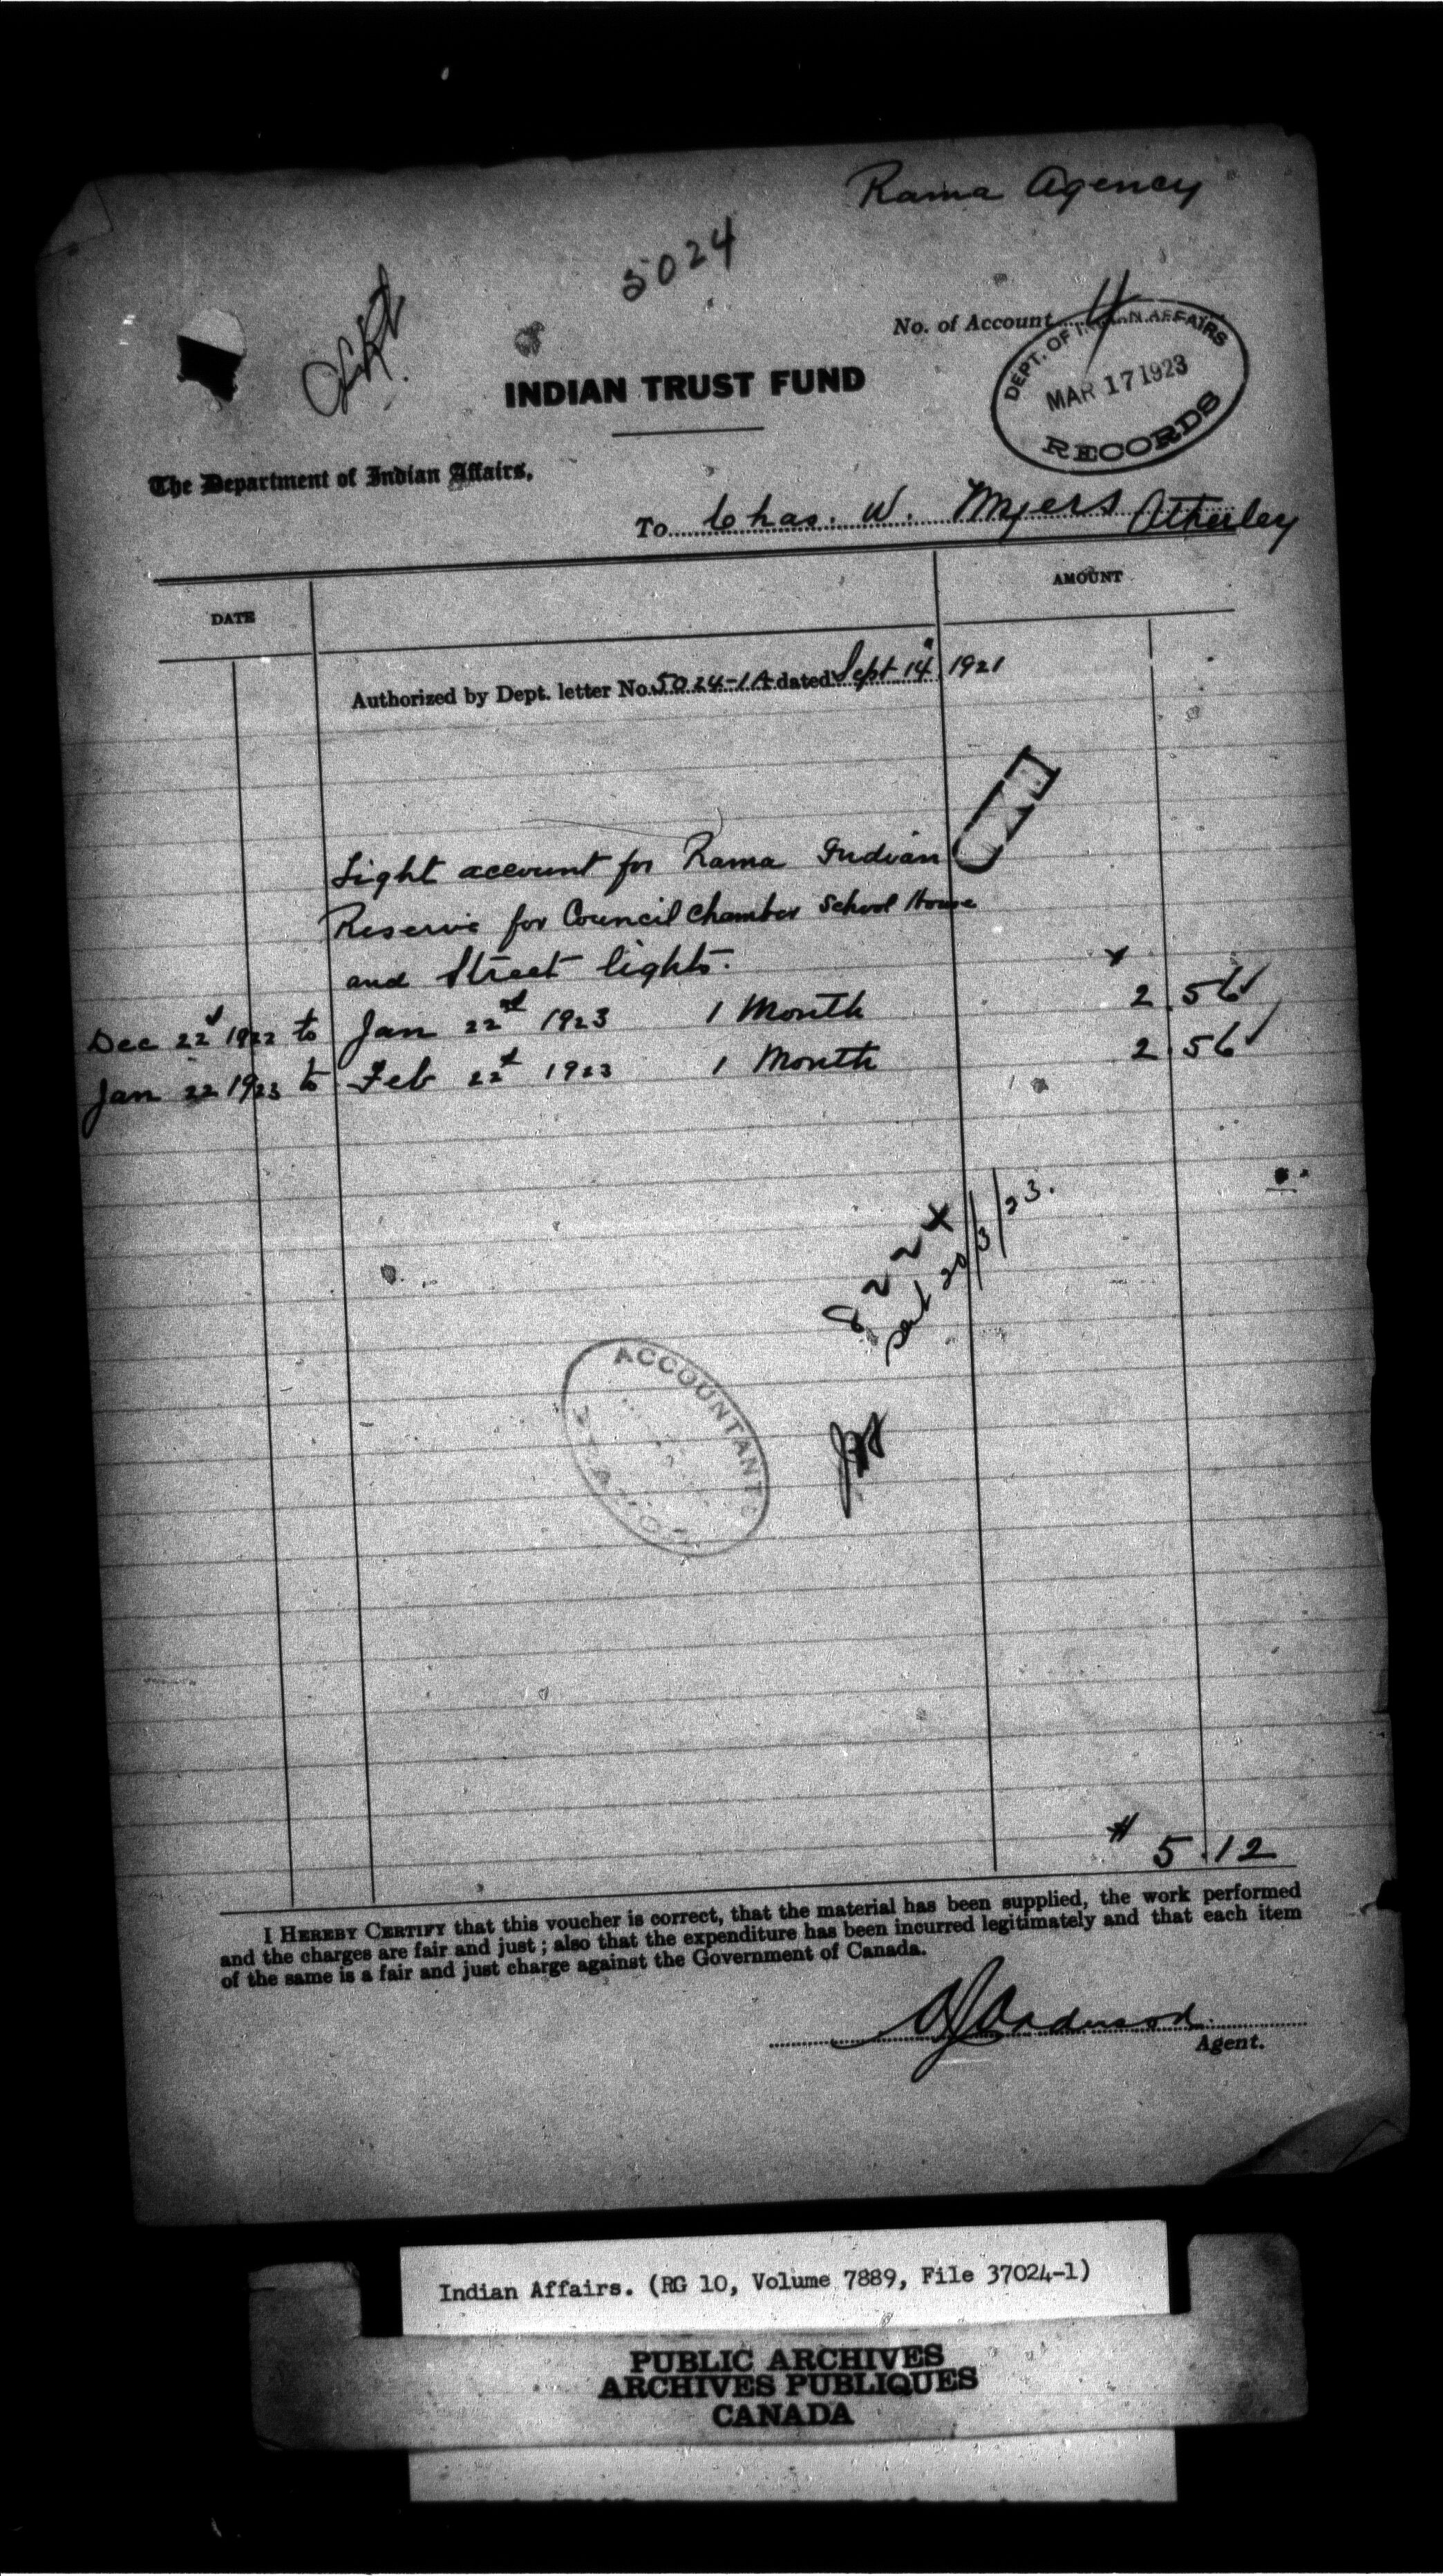 Rama Agency
5024
No. of Account 4
DEPT. OF INDIAN AFFAIRS
MAR 17 1923
RECORDS
INDIAN TRUST FUND
The Department of Indian Affairs,
To Chas. W. Myers Atherley
DATE
AMOUNT
Authorized by Dept. letter No. 5024-1A dated Sept 14" 1921
Light account for Rama Indian
Reserve for Council Chamber School House
and Street lights.
Dec 22d 1922 to Jan 22nd 1923 1 Month 2.56
Jan 22 1923 to Feb 22d 1923 1 Month 2.56
20/3/23.
ACCOUNTANT
$ 5.12
I HEREBY CERTIFY that this voucher is correct, that the material has been supplied, the work performed
and the charges are fair and just ; also that the expenditure has been incurred legitimately and that each item
of the same is a fair and just charge against the Government of Canada.
Anderson
Agent.
Indian Affairs. (RG 10, Volume 7889, File 37024-1)
PUBLIC ARCHIVES
ARCHIVES PUBLIQUES
CANADA